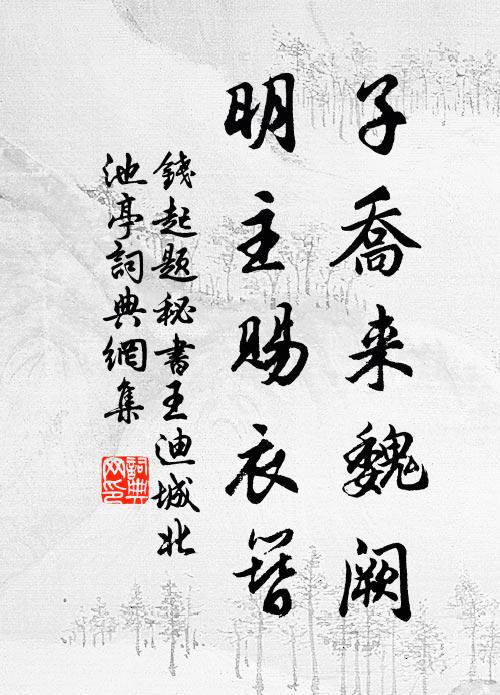 子喬来魏阙
明主賜衣簪
錢起题秘書王迪城北
池亭詞典網集
詞典网印